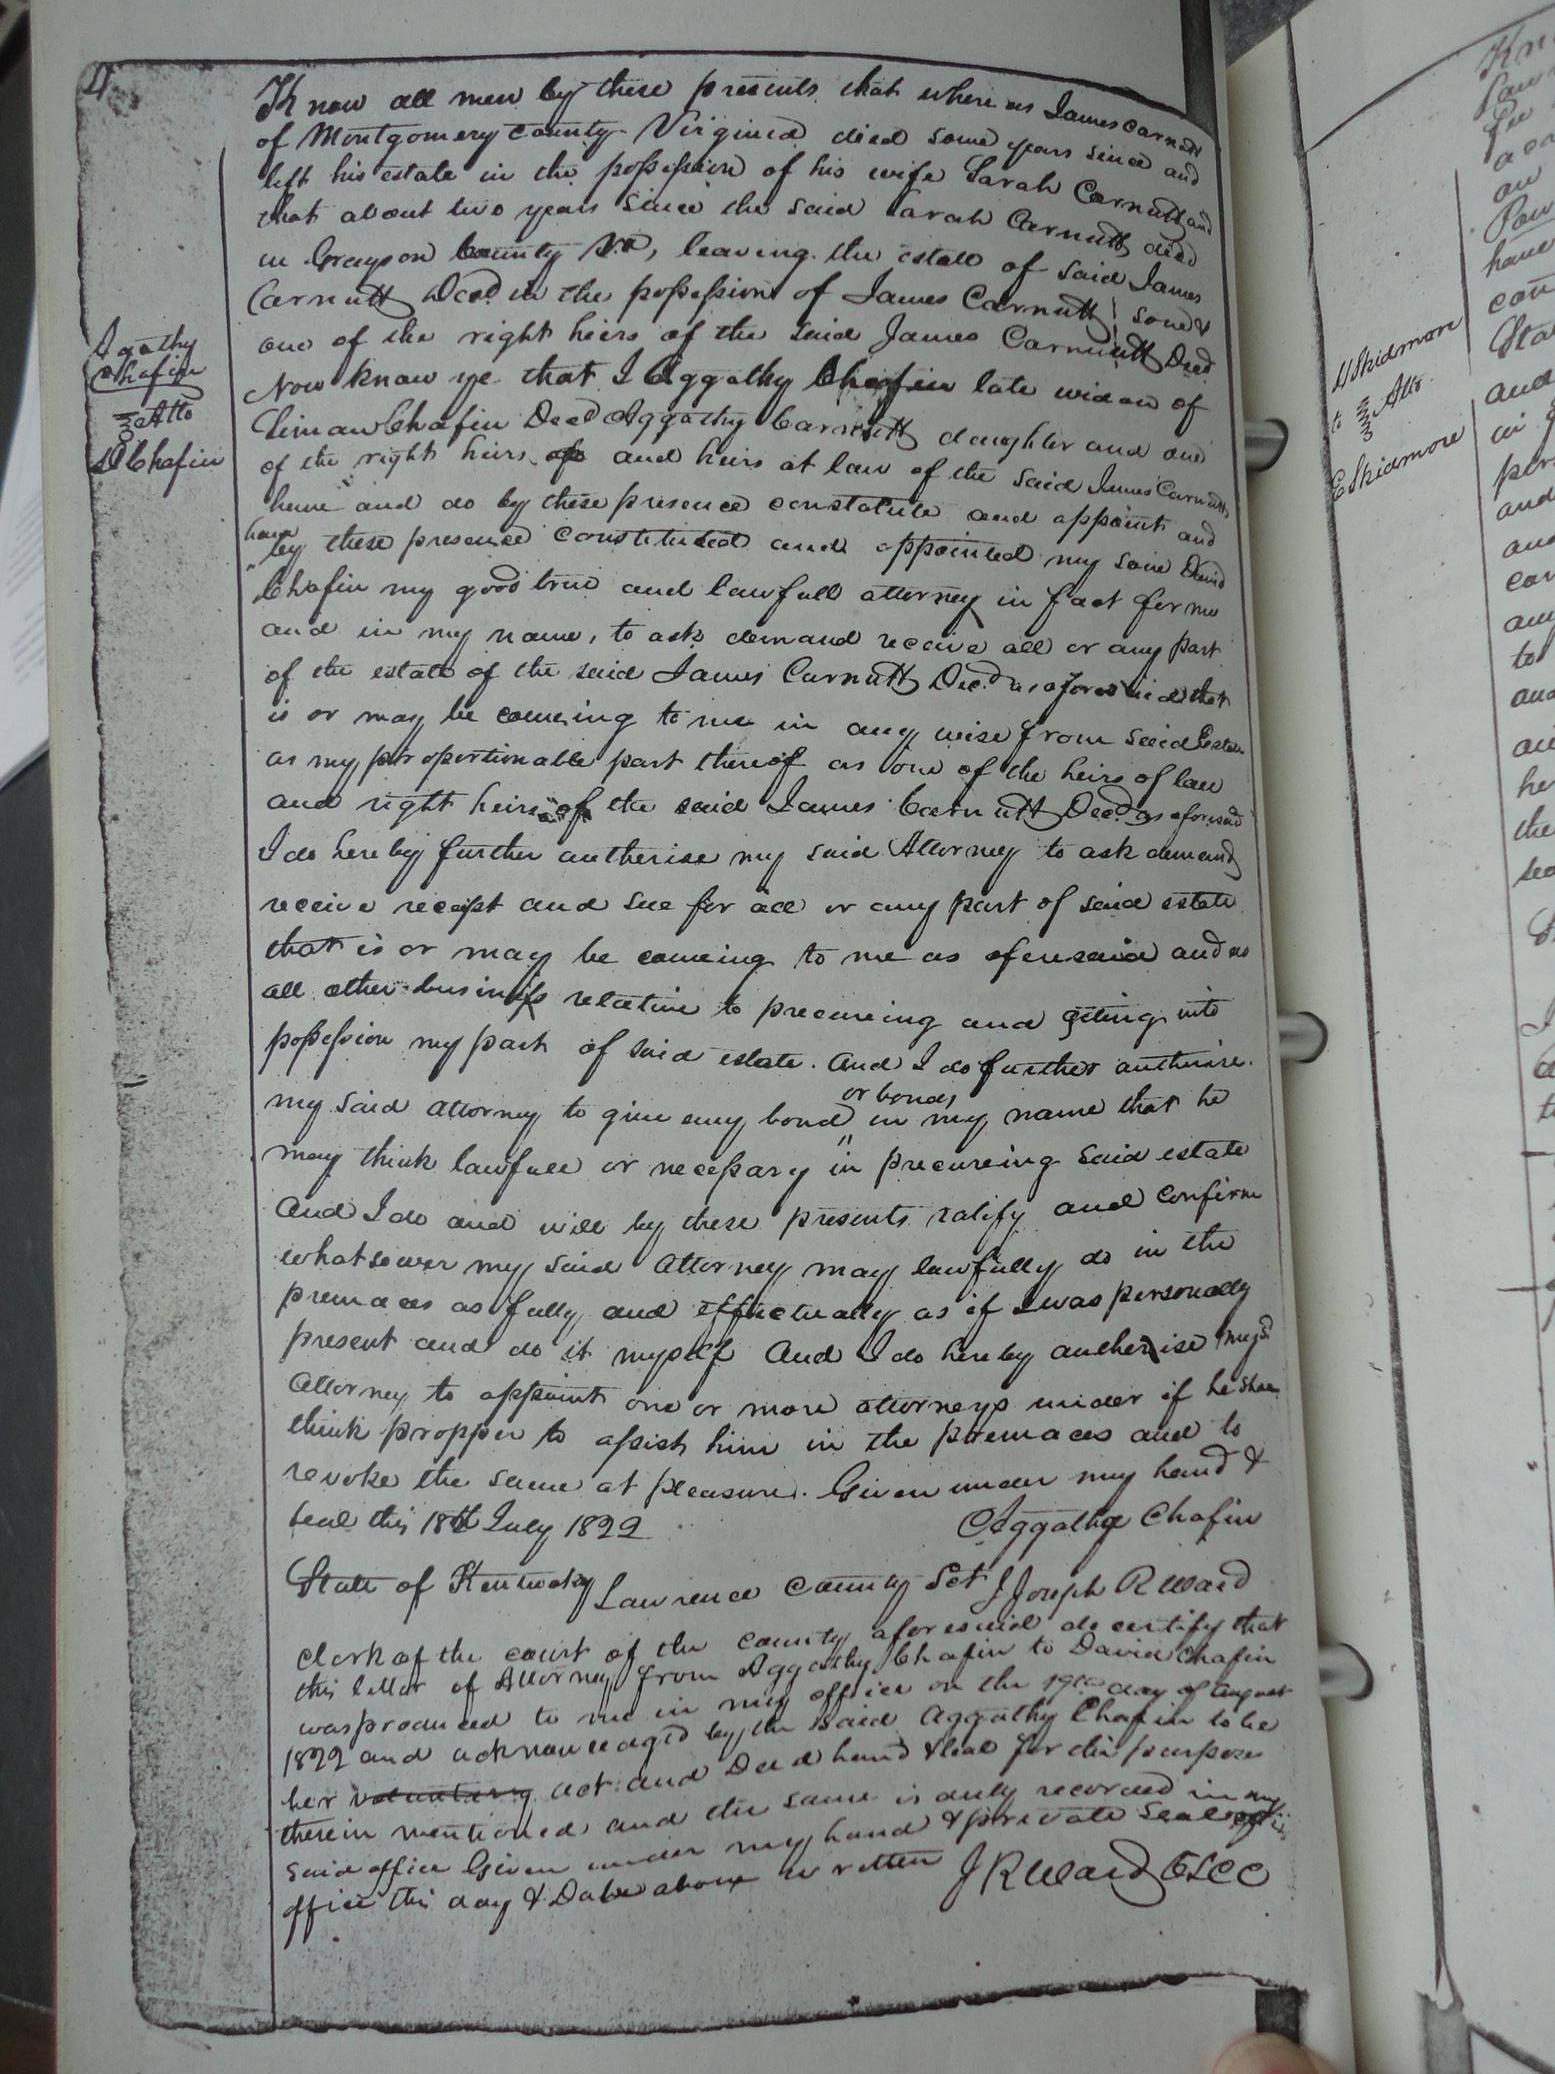 Know all men by these presents that where as James Carnutt
of Montgomery County Virginia died some years since and
left his estate in the possession of his wife Sarah Carnutt and
that about two years since the said Sarah Carnutt died
in Grayson County Va, leaving the estate of said James
Carnutt Decd in the possession of James Carnutt, son &
one of the right heirs of the said James Carnutt Decd
Now know ye that I Aggathy Chafin late widow of
Chafin Decd Aggathy Carnutt daughter and one
of the right heirs of and heirs at law of the said James Carnutt
have and do by these presence constatute and appoint and
have
by these presence constituted and appointed my son David
Chafin my good true and lawfull attorney in fact for me
and in my name, to ask demand receive all or any part
of the estate of the said James Carnutt Decd as aforesaid that
is or may be comeing to me in any wise from said Estate
as my proportionable part thereof as one of the heirs of law
and right heirs of the said James Carnutt Decd as aforesaid
I do hereby further autherise my said Attorney to ask demand
receive receipt and sue for all or any part of said estate
that is or may be comeing to me as aforesaid and as
all other business relative to precureing and geting into
possession my part of said estate. And I do further autherise
or bonds
my said attorney to give any bond in my name that he
may think lawfull or necessary in precureing said estate
And I do and will by these presents ratify and confirm
whatsoever my said Attorney may lawfully do in the
premaces as fully and effectually as if I was personally
present and do it myself And I do hereby autherise my sd
Attorney to appoint one or more attorneys under if he shall
think propper to assist him in the premaces and to
revoke the same at pleasure. Given under my hand &
seal this 18th July 1822
Aggathy Chafin
State of Kentucky Lawrence County Sct I Joseph R Ward
clerk of the court of the county aforesaid do certify that
this letter of Attorney from Aggathy Chafin to David Chafin
was produced to me in my office on the 19th day of August
1822 and acknowledged by the said Aggathy Chafin to be
her voluntary act and Deed hand & seal for the purposes
therein mentioned and the same is duly recorded in my
said office Given under my hand & private seal
office this day & Date above written J R Ward CLCC
Agathy
Chafin
to Atto
D Chafin
Skidmore
to Atto
E Skidmore